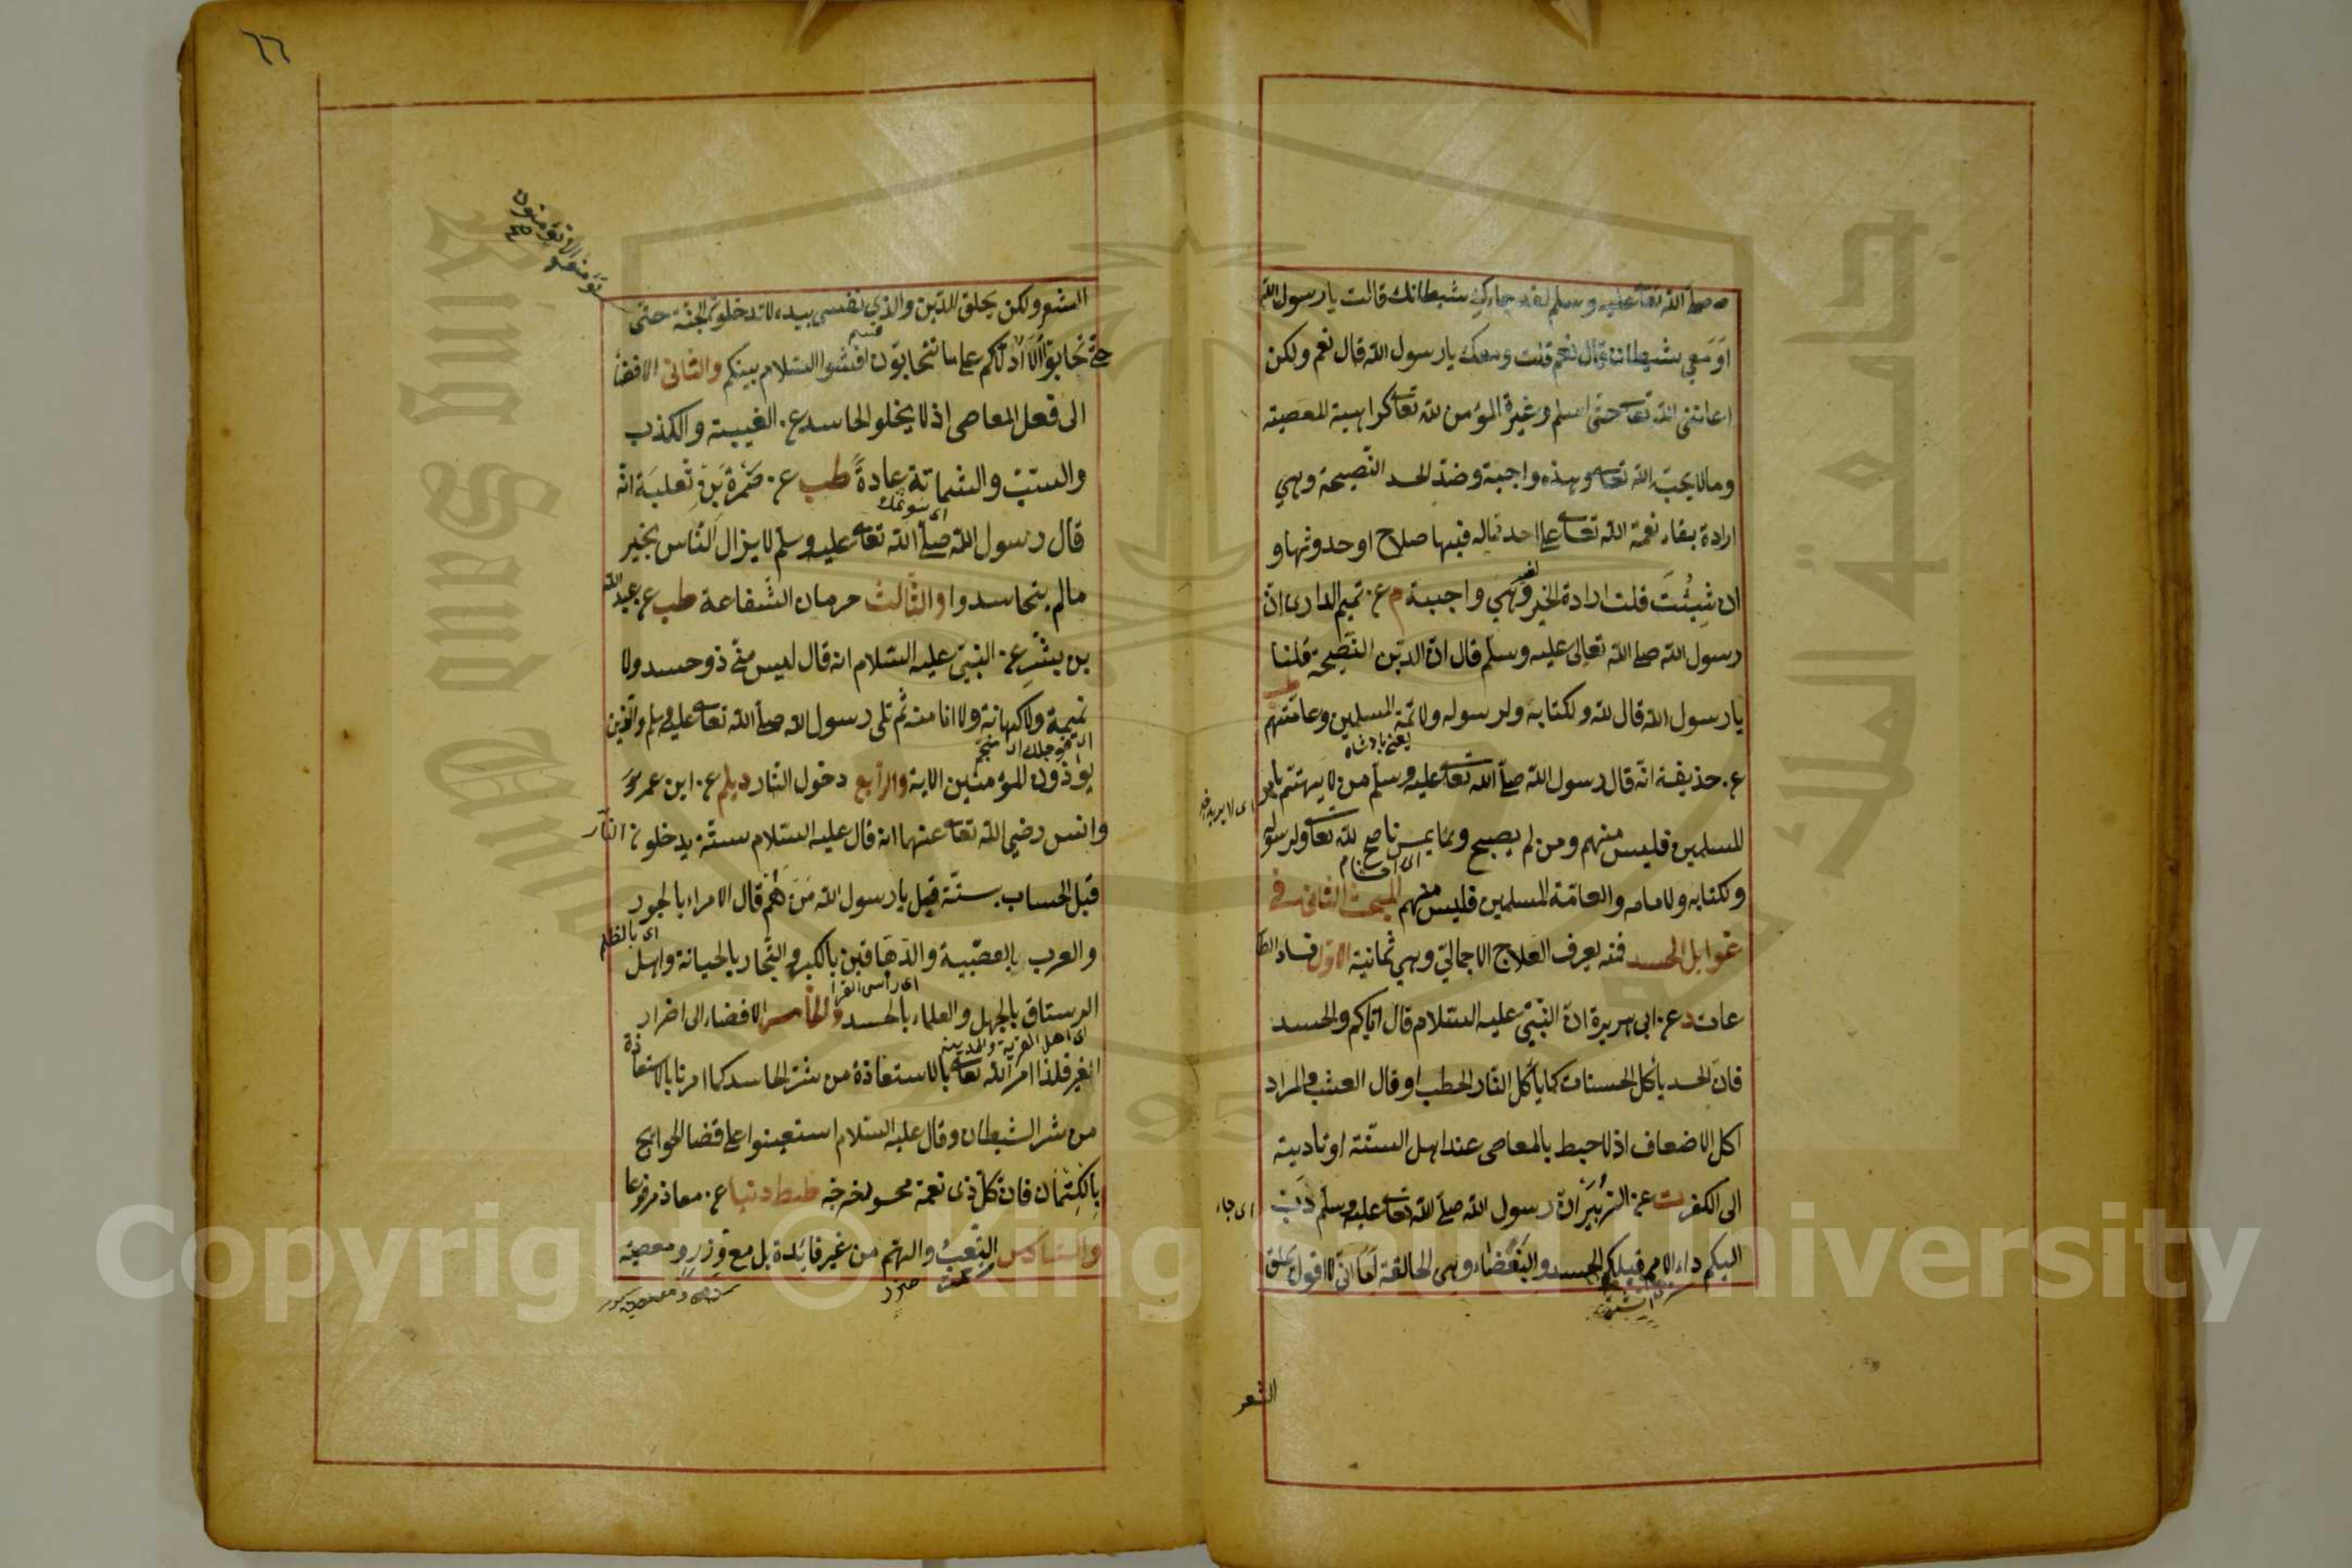 صلى الله تعا عليه وسلم لقد جاءك شيطانك قالت يا رسول الله
اوَمَعِي شيطان قال نعم قلت ومعك يا رسول الله قال نعم ولكن
اعانني الله تعا حتى اسلم وغيرة المؤمن لله تعا كراهية المعصية
وما لا يحبّ الله تعا وهذه واجبة وضدّ الحسد النّصيحة وهي
ارادة بقاء نعمة الله تعا على احد مماله فيها صلاح او حدوثها و
ان شِئْتَ قلت ارادة الخير وهي واجبة م عن تميم الدارى انّ
لغيره
رسول الله صلى الله تعالى عليه وسلم قال انّ الدين النّصيحة قلنا
يا رسول الله قال لله ولكتابه ولرسوله ولائمّة المسلمين وعامّتهم
طب
عن حذيفة انّه قال رسول الله صلى الله تعا عليه وسلم من لا يهتم بامر
يعنى پادشاه
للمسلمين فليس منهم ومن لم يصبح ويمسي ناصح لله تعا ولرسوله
ولكتابه ولامامه والعامّة المسلمين فليس منهم المبحث الثانى فى
غوايل الحسد فمنه يعرف العلاج الاجمالي وهي ثمانية الاوّل فساد الطا
عات د عن ابى هريرة انّ النّبيّ عليه السّلام قال ايّاكم والحسد
فانّ الحسد يأكل الحسنات كما يأكل النّار الحطب او قال العشب والمراد
اكل الاضعاف اذ لا حبط بالمعاصى عند اهل السّنّة او تأديته
الى الكفر ت عن الزبير انّ رسول الله صلى الله تعا عليه وسلم دَبّ
اى جاء
اليكم داء الامم قبلكم الحسد والبَغْضَاء وهى الحالقة اَمَا انّى لا اقول تحلق
الشعر
٦٦
الشعر ولكن تحلق الدّين والذي نفسى بيده لا تدخلون الجنّة حتى
تؤمنوا ولا تؤمنون
صح
حتى تحابوا اَلَا اَدُلّكم على ما تتحابّون افشوا السّلام بينكم والثّانى الافضاء
الى فعل المعاصى اذ لا يخلو الحاسد عن الغيبة والكذب
والسّبّ والشماتة عادةً طب عن ضَمْرَةَ بْنِ ثَعلَبَة انّه
قال رسول الله صلى الله تعا عليه وسلم لا يزال النّاس بخير
مالم يتحاسدوا والثّالث حرمان الشّفاعة طب عن عبد الله
بن بشر عن النبيّ عليه السّلام انه قال ليس منّى ذو حسد ولا
نميمة ولا كهانة ولا انا منه ثُم تلى رسول الله صلى الله تعا عليه وسلم والّذين
يؤذون المؤمنين الاية والرّابع دخول النّار ديلم عن ابن عمر
وانس رضي الله تعا عنهما انه قال عليه السّلام ستّة يدخلون النّار
قبل الحساب بستّة قيل يا رسول الله مَنْ هُمْ قال الامراء بالجور
اى بالظلم
والعرب بالعصبيّة والدّهاقين بالكبر والتّجار بالخيانة واهل
الرستاق بالجهل والعلماء بالحسد والخامس الافضاء الى اضرار
اى اهل القرية والمدينة
الغير فلذا امر الله تعا بالاستعاذة من شرّ الحاسد كما امرنا بالاستعاذة
من شر الشيطان وقال عليه السّلام استعينوا على قضاء الحوايج
بِالكِتْمَان فانّ كلّ ذى نعمة محسود خرجه طط دنيا عن معاذ مرفوعا
والسّادس التّعب والهمّ من غير فائدة بل مع وزر ومعصية